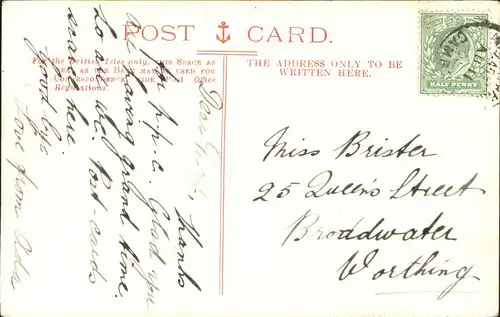 POST CARD.
For the British Isles only, this Space as
well as the Back may be used for
Correspondence. Post Office
Regulations.
THE ADDRESS ONLY TO BE
WRITTEN HERE.
HALF PENNY
Dear
thanks
for p.p.c. Glad you
are having grand time.
Post-cards
scarce here
Good bye
Love from Ada
Miss Brister
25 Queen's Street
Broadwater
Worthing